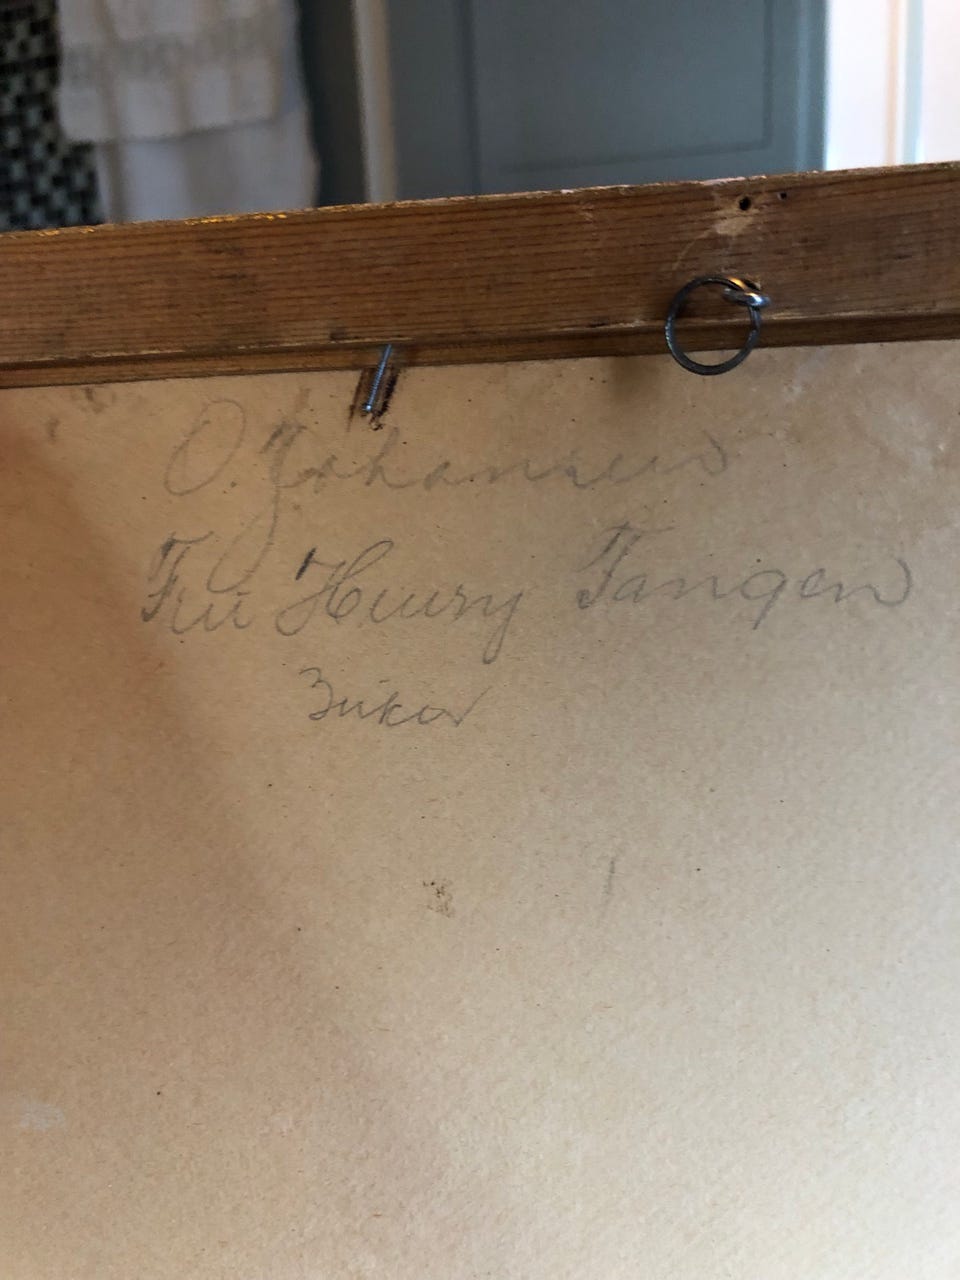 O. Johansen
Fru Henry Tangen